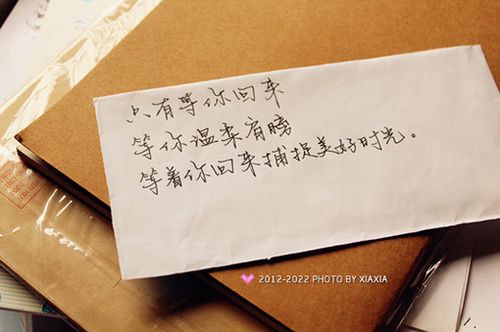 只有等你回来
等你温柔肩膀
等着你回来捕捉美好时光。
2012-2022 PHOTO BY XIAXIA